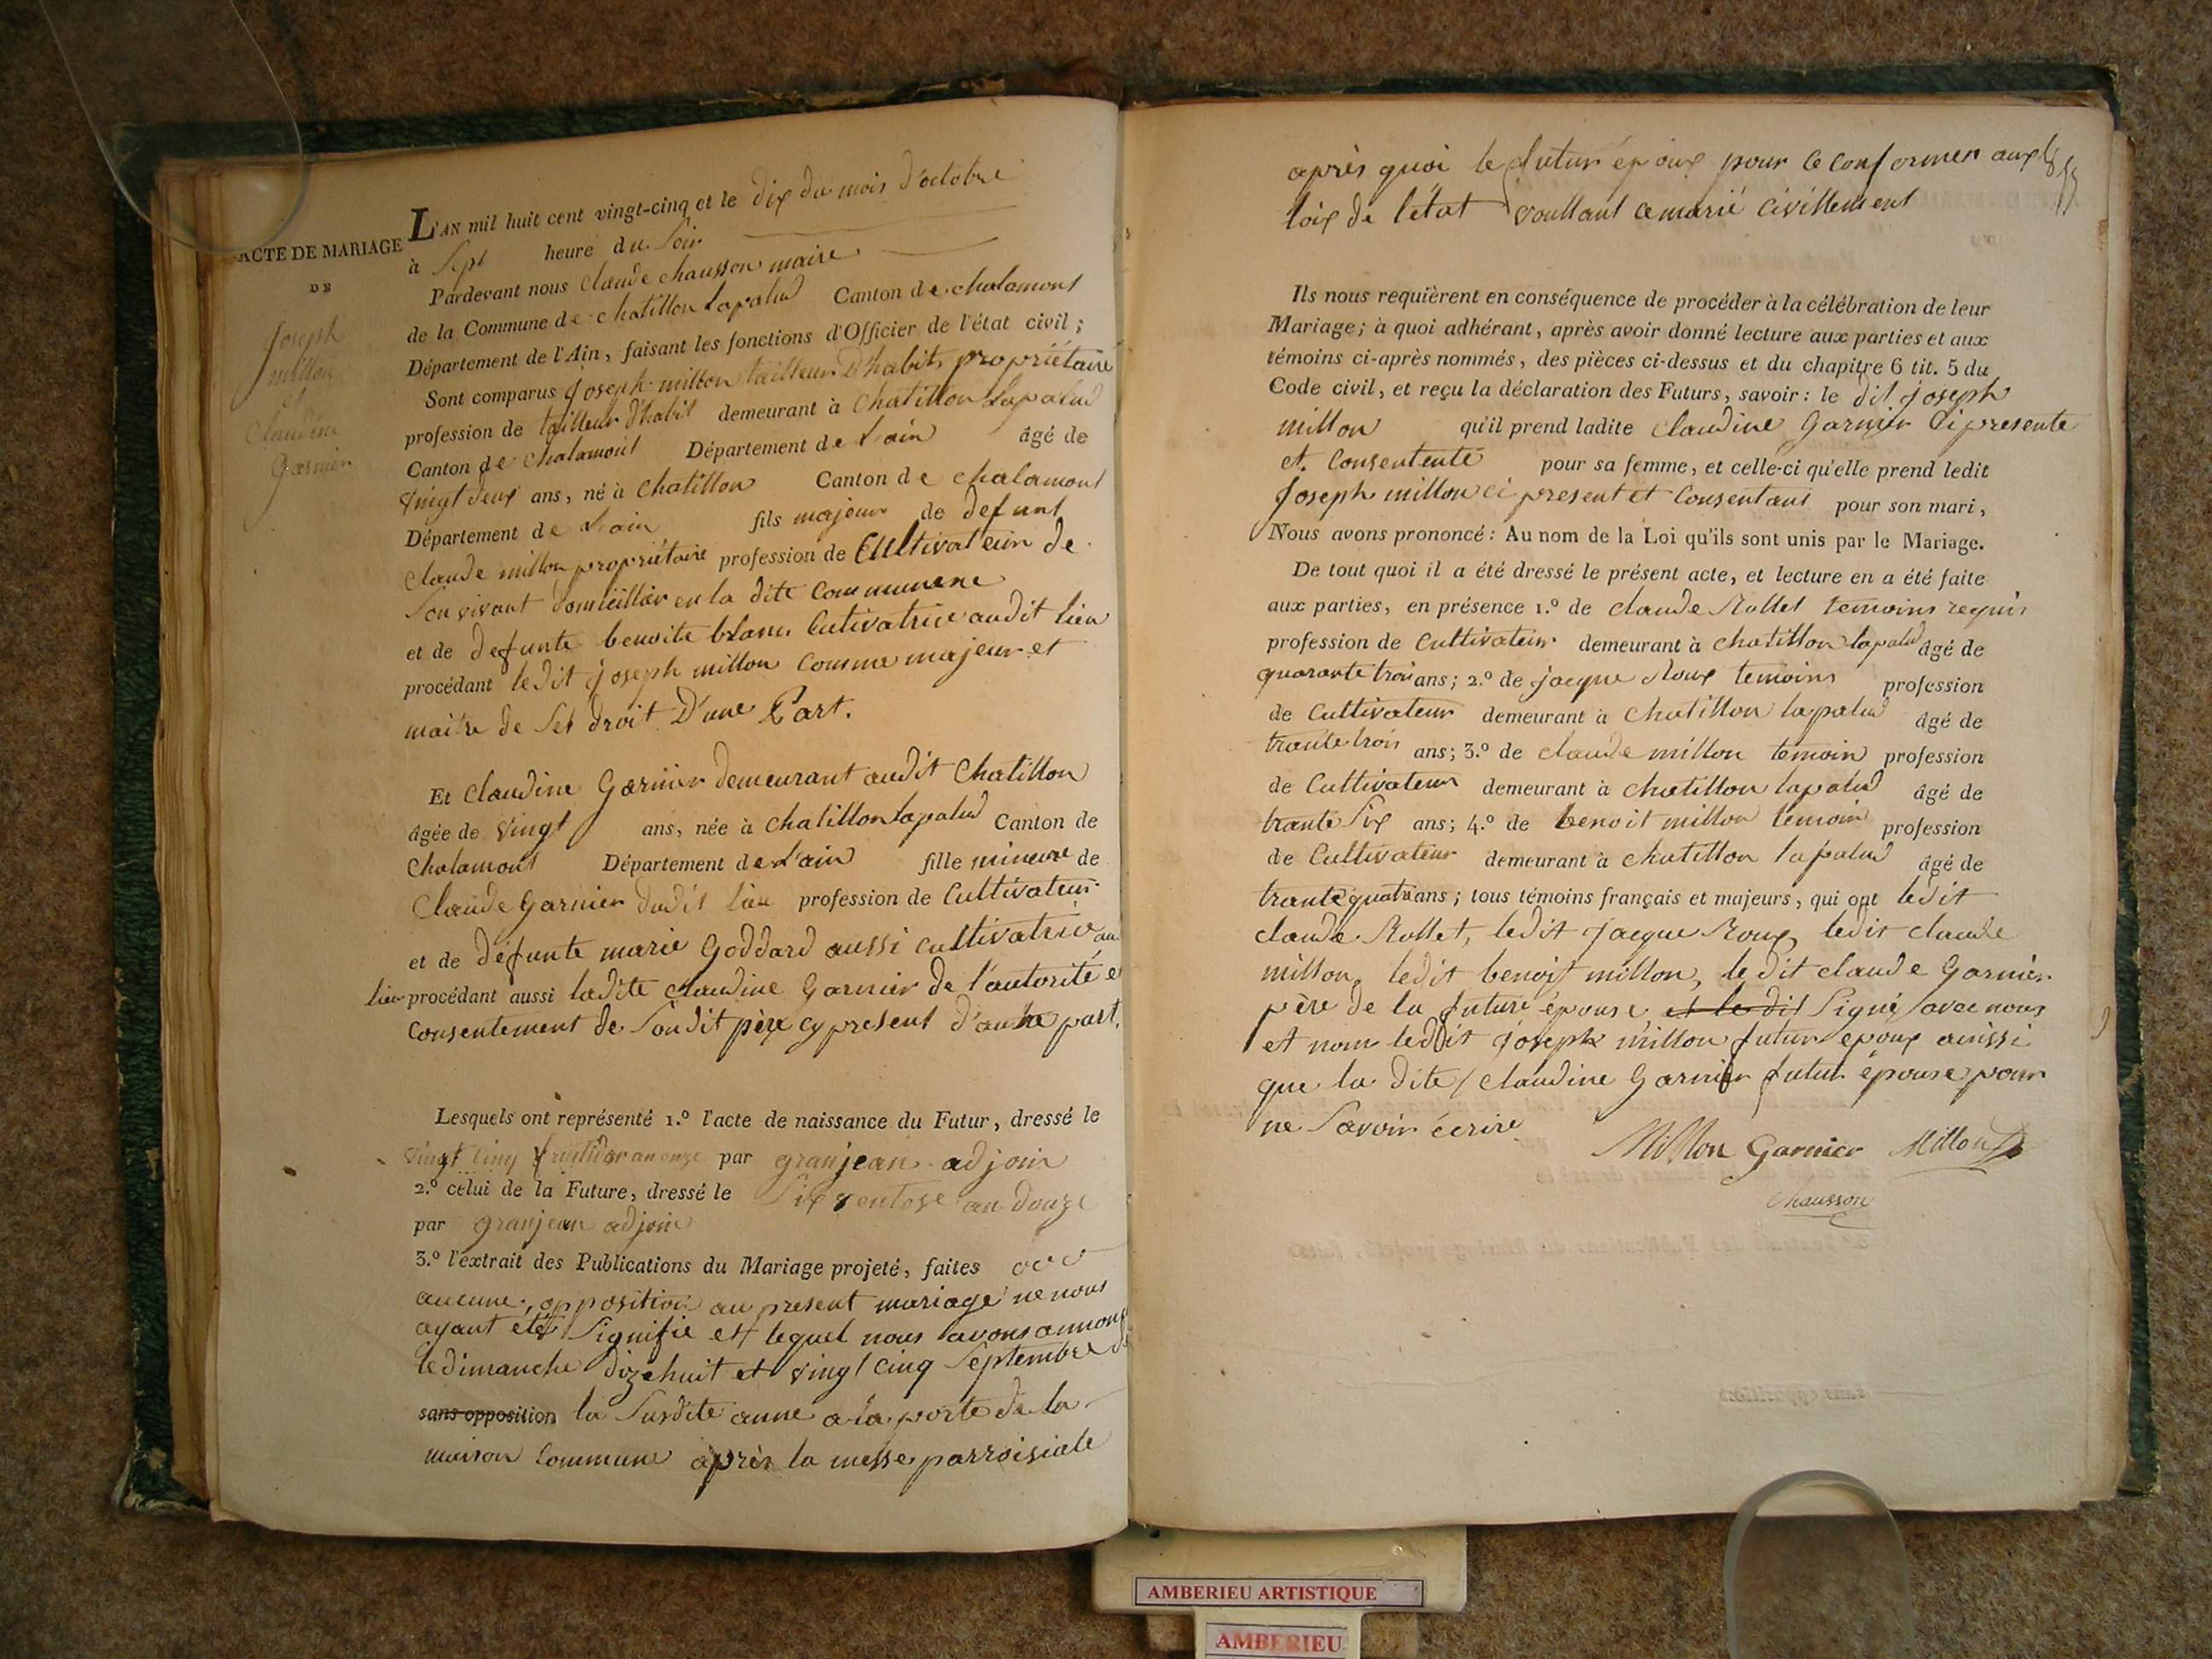 ACTE DE MARIAGE
DE
Joseph
millon
et
Claudine
Garnier
L'AN mil huit cent vingt-cinq et le dix du mois d'octobre
à Sept heure du Soir
Pardevant nous Claude chausson maire
de la Commune de chatillon Lapalud Canton de chalamont
Département de l'Ain, faisant les fonctions d'Officier de l'état civil;
Sont comparus joseph millon tailleur D'habit, propriétaire
profession de tailleur d'habit demeurant à Chatillon Lapalud
Canton de chalamont Département de L'ain âgé de
vingt deux ans, né à chatillon Canton de chalamont
Département de L'ain fils majeur de defunt
Claude millon propriétaire profession de Cultivateur de
Son vivant domicillier en la dite Commune
et de defunte benoite blanc Cutivatrice audit lieu
procédant ledit joseph millon Comme majeur et
maitre de Ses droit D'une Part.
Et Claudine Garnier demeurant audit Chatillon
âgée de vingt ans, née à chatillon Lapalud Canton de
Chalamont Département de L'ain fille mineure de
Claude Garnier dudit lieu profession de Cultivateur
et de défunte marie Goddard aussi cultivatrice au
lieu procédant aussi ladite Claudine Garnier de l'autorité e
Consentement de Son dit père cy present d'autre part.
Lesquels ont représenté 1.º l'acte de naissance du Futur, dressé le
vingt cinq fructidor an onze par granjean adjoin
2.º celui de la Future, dressé le Six ventose an douze
par granjean adjoin
3.º l'extrait des Publications du Mariage projeté, faites
aucune opposition au present mariage ne nous
ayant eté Signifie et lequel nous avons annonç
le dimanche dizehuit et vingt cinq Septembre de
sans opposition la Susdite anne a la porte de la
maison Commune après la messe parroisiale
après quoi le futur époux pour ce conformer aux
loix de l'état voullant ce marié civillement
Ils nous requièrent en conséquence de procéder à la célébration de leur
Mariage; à quoi adhérant, après avoir donné lecture aux parties et aux
témoins ci-après nommés, des pièces ci-dessus et du chapitre 6 tit. 5 du
Code civil, et reçu la déclaration des Futurs, savoir: le dit joseph
millon qu'il prend ladite Claudine Garnier Ci presente
et Consentente pour sa femme, et celle-ci qu'elle prend ledit
Joseph millon ci present et Consentant pour son mari,
Nous avons prononcé: Au nom de la Loi qu'ils sont unis par le Mariage.
De tout quoi il a été dressé le présent acte, et lecture en a été faite
aux parties, en présence 1.º de claude Rollet temoins requis
profession de Cultivateur demeurant à chatillon lapalud âgé de
quarante trois ans; 2.º de jacque Roux temoins profession
de Cultivateur demeurant à Chatillon lapalud âgé de
trante trois ans; 3.º de claude millon temoin profession
de Cultivateur demeurant à chatillon lapalud âgé de
trante Six ans; 4.º de benoit millon temoin profession
de Cultivateur demeurant à chatillon lapalud âgé de
trante quatre ans; tous témoins français et majeurs, qui ont ledit
claude Rollet, ledit jacque Roux, ledit claude
millon, ledit benoit millon, le dit claude Garnier
père de la future épouse et le dit Signé avec nous
et nom ledit joseph millon futur epoux ainssi
que la dite Claudine Garnier futur épouse pour
ne Savoir écrire
Millon Garnier Millon
Chausson
AMBERIEU ARTISTIQUE
AMBERIEU